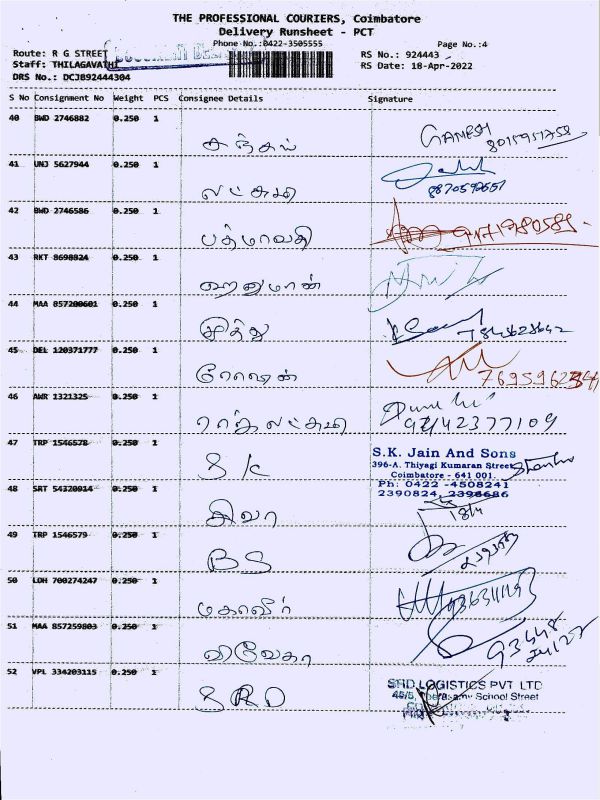 THE PROFESSIONAL COURIERS, Coimbatore
Delivery Runsheet - PCT
Phone No.:0422-3505555 Page No.:4
Route: R G STREET RS No.: 924443
Staff: THILAGAVATHI RS Date: 18-Apr-2022
DRS No.: DCJB92444304
S No Consignment No Weight PCS Consignee Details Signature
40 BWD 2746882 0.250 1
சஞ்சய் GANESH
8015951758
41 UNJ 5627944 0.250 1
லட்சுமி 8870592657
42 BWD 2746586 0.250 1
பத்மாவதி
43 RKT 8698824 0.250 1
ஹனுமான்
44 MAA 857200601 0.250 1
முத்து 7845628642
45 DEL 120371777 0.250 1
ரோஷன்
46 AWR 1321325 0.250 1
ராஜலட்சுமி
47 TRP 1546578 0.250 1
SK S.K. Jain And Sons
396-A. Thiyagi Kumaran Street
Coimbatore - 641 001.
Ph: 0422 -4508241
2390824, 2398686
48 SRT 54320014 0.250 1
சிவா 18/4
49 TRP 1546579 0.250 1
BS
50 LOH 700274247 0.250 1
மகாவீர்
51 MAA 857259803 0.250 1
விவேகா
52 VPL 334203115 0.250 1
SRD LOGISTICS PVT LTD
School Street